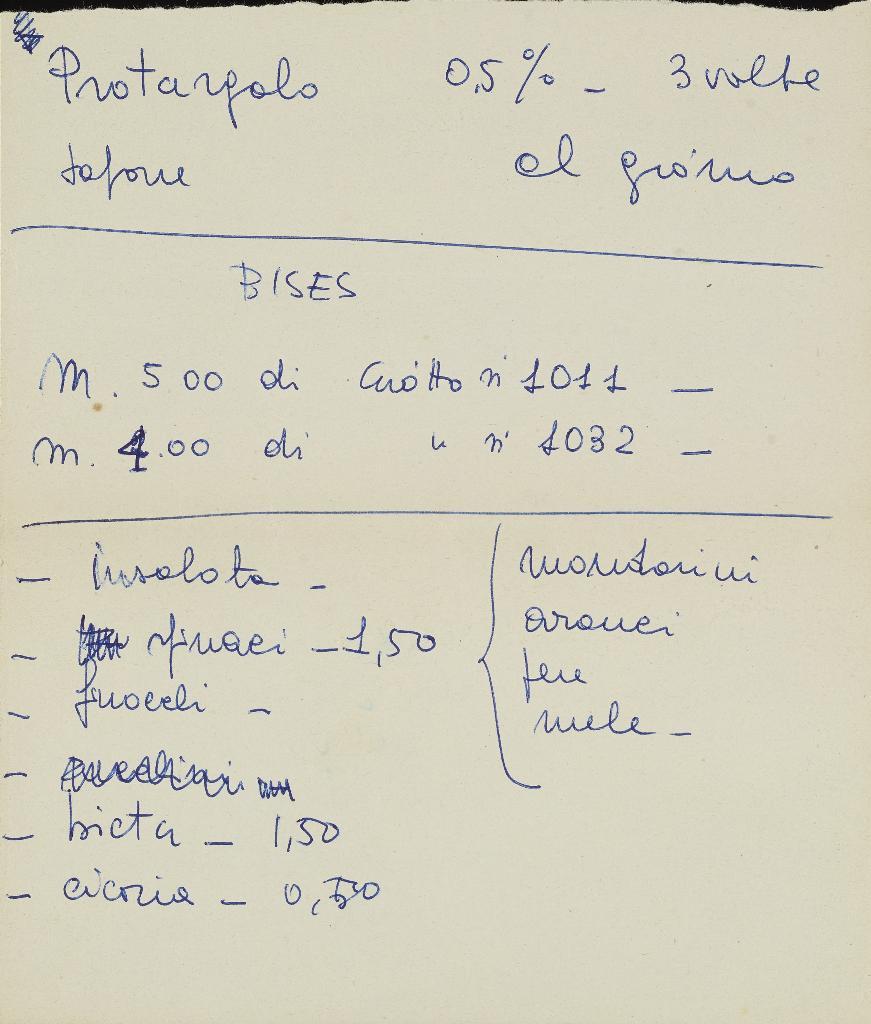 Protargolo 0,5% – 3 volte
sapone al giorno
BISES
M. 5 00 di Giotto n° 1011 –
m. 4.00 di " n° 1032 –
– insalata –
– spinaci – 1,50
–
– bieta – 1,50
– cicoria – 0,50
mandarini
aranci
pere
mele –